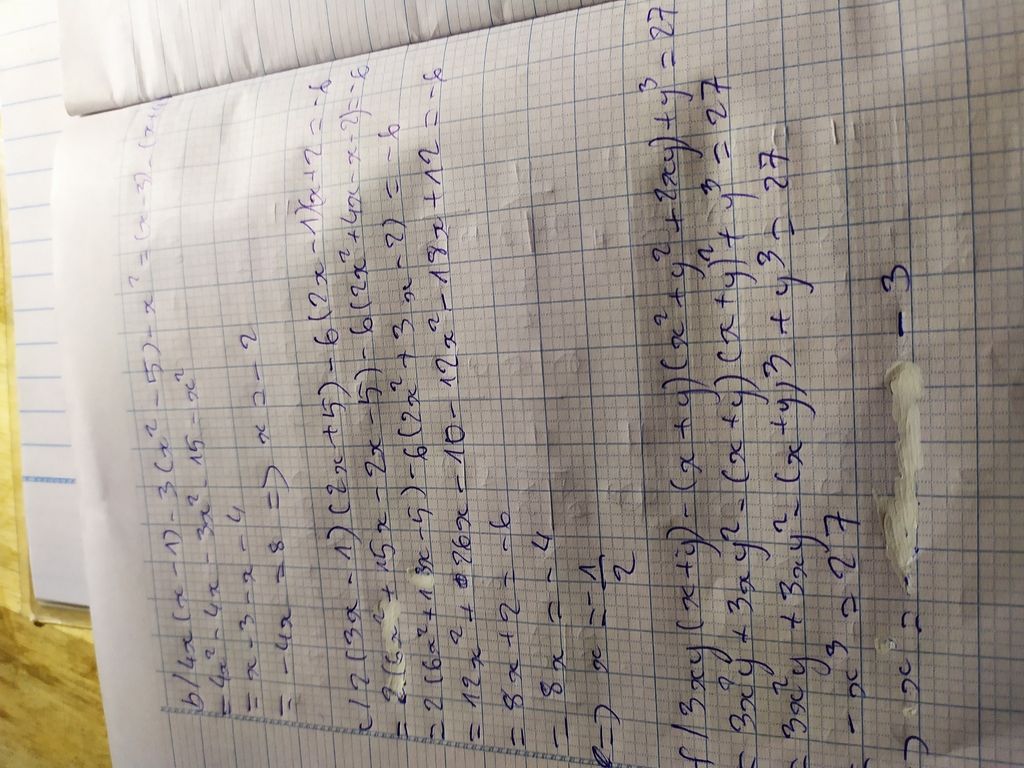 b/ 4x(x - 1) - 3(x² - 5) - x² = (x - 3) - (x + 4)
= 4x² - 4x - 3x² - 15 - x²
= x - 3 - x - 4
= - 4x = 8 => x = - 2
c/ 2(3x - 1)(2x + 5) - 6(2x - 1)(x + 2 = - 6
= 2(6x² + 15x - 2x - 5) - 6(2x² + 4x - x - 2) = - 6
= 2(6x² + 13x - 5) - 6(2x² + 3x - 2) = - 6
= 12x² + 26x - 10 - 12x² - 18x + 12 = - 6
= 8x + 2 = - 6
= 8x = - 4
=> x = - 1/2
f/ 3xy(x + y) - (x + y)(x² + y² + 2xy) + y³ = 27
= 3x²y + 3xy² - (x + y)(x + y)² + y³ = 27
= 3x²y + 3xy² - (x + y)³ + y³ = 27
- x³ = 27
) x = - 3